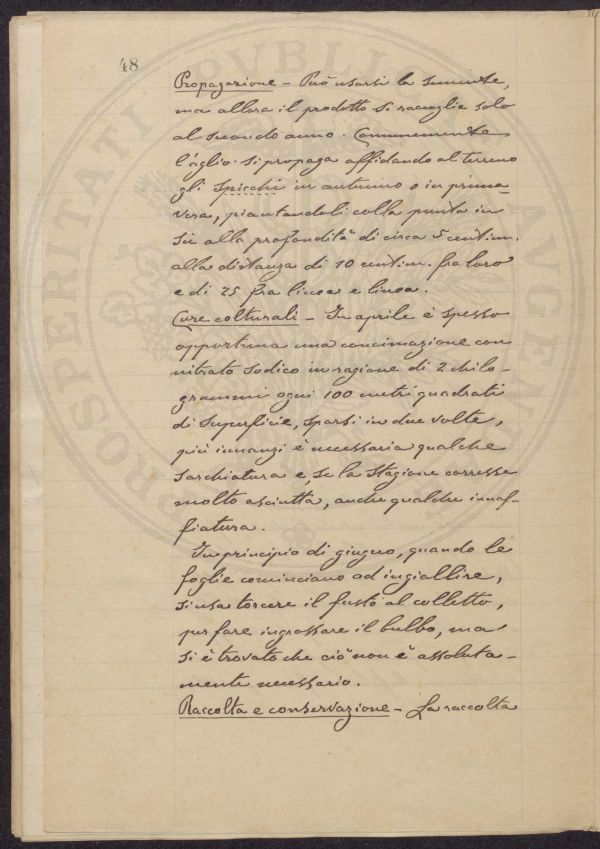 48
Propagazione – Può usarsi la semente,
ma allora il prodotto si raccoglie solo
al secondo anno. Comunemente
l'aglio si propaga affidando al terreno
gli spicchi in autunno o in prima-
vera, piantandoli colla punta in
sù alla profondità di circa 5 centim.
alla distanza di 10 centim. fra loro
e di 25 fra linea e linea.
Cure colturali – In aprile è spesso
opportuna una concimazione con
nitrato sodico in ragione di 2 chilo-
grammi ogni 100 metri quadrati
di superficie, sparsi in due volte,
più innanzi è necessaria qualche
sarchiatura e, se la stagione corresse
molto asciutta, anche qualche innaf-
fiatura.
In principio di giugno, quando le
foglie cominciano ad ingiallire,
si usa torcere il fusto al colletto,
per fare ingrossare il bulbo, ma
si è trovato che ciò non è assoluta-
mente necessario.
Raccolta e conservazione – La raccolta
PROSPERITATI PVBLICAE AVGEN